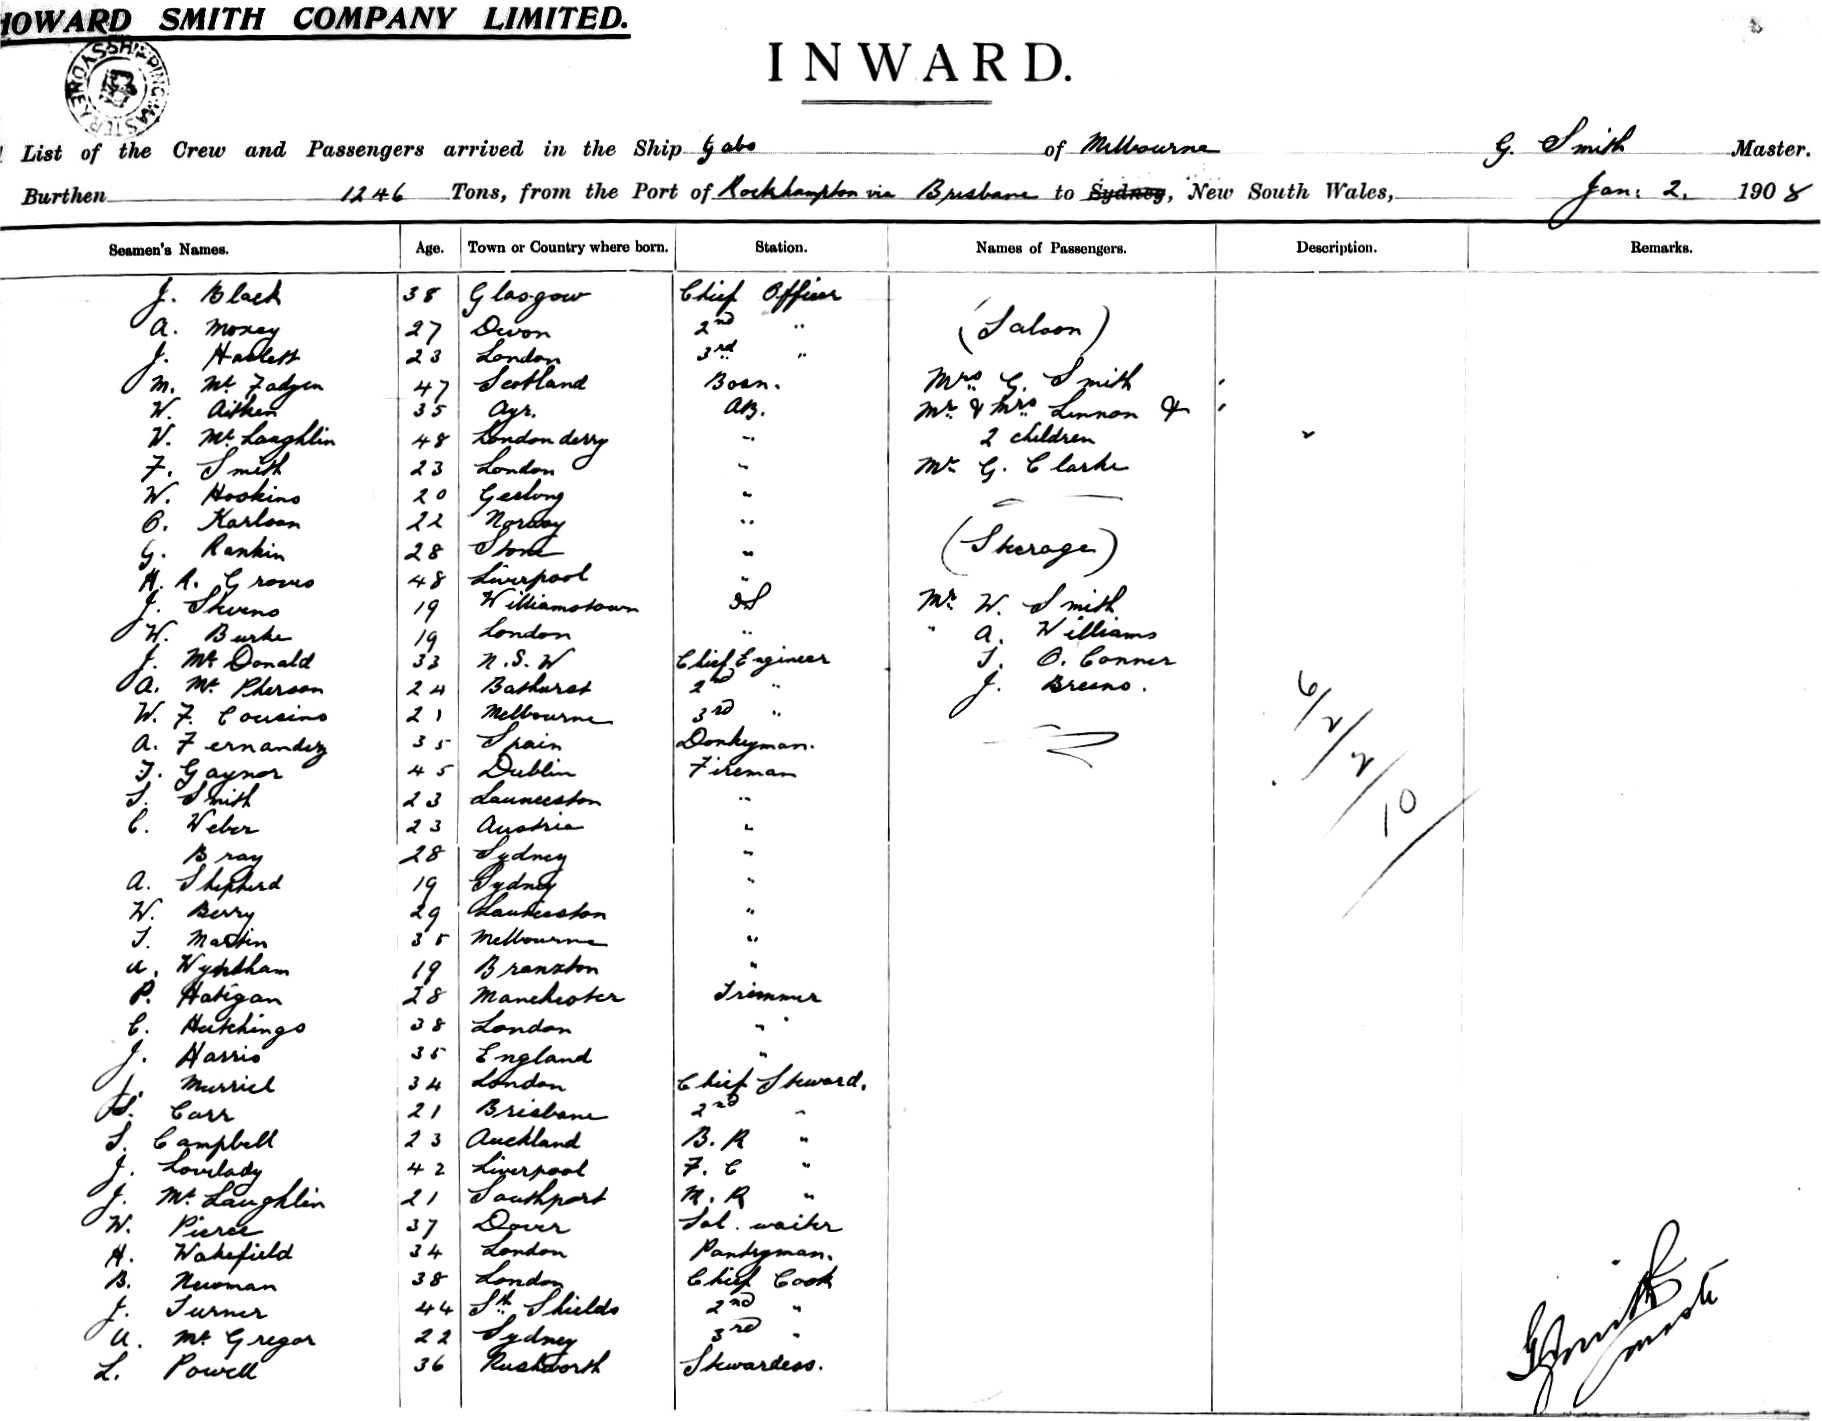 HOWARD SMITH COMPANY LIMITED.
SHIPPING MASTER SYDNEY
INWARD.
List of the Crew and Passengers arrived in the Ship Gabo of Melbourne G. Smith Master.
Burthen 1246 Tons, from the Port of Rockhampton via Brisbane to Sydney, New South Wales, Jan: 2. 1908
Seamen's Names. Age. Town or Country where born. Station. Names of Passengers. Description. Remarks.
J. Black 38 Glasgow Chief Officer
A. Moxey 27 Devon 2nd " (Saloon)
J. Haslett 23 London 3rd "
M. McFadyen 47 Scotland Bosn. Mrs G. Smith
W. Aitken 35 Ayr. AB. Mr & Mrs Lennon &
W. McLaughlin 48 Londonderry " 2 children
F. Smith 23 London " Mr G. Clarke
W. Hoskins 20 Geelong "
O. Karlson 22 Norway "
G. Rankin 28 " (Steerage)
H. R. Groves 48 Liverpool "
J. Stevens 19 Williamstown OS Mr W. Smith
W. Burke 19 London " " A. Williams
J. McDonald 33 N.S.W Chief Engineer T. O.Conner
A. McPherson 24 Bathurst 2nd " J. Breeno.
W. F. Cousins 21 Melbourne 3rd "
A. Fernandez 35 Spain Donkeyman.
T. Gaynor 45 Dublin Fireman
S. Smith 23 Launceston "
C. Weber 23 Austria "
Bray 28 Sydney "
A. Shepherd 19 Sydney "
W. Berry 29 Launceston "
T. Martin 35 Melbourne "
A. Wyndham 19 Branxton "
P. Hatigan 28 Manchester Trimmer
C. Hutchings 38 London "
J. Harris 35 England "
J. Murriel 34 London Chief Steward.
S. Carr 21 Brisbane 2nd "
S. Campbell 23 Auckland B. R "
J. Lovelady 42 Liverpool F. C "
J. McLaughlin 21 Southport M. R "
W. Pierce 37 Dover Sal. waiter
H. Wakefield 34 London Pantryman.
B. Newman 38 London Chief Cook
J. Turner 44 Sth Shields 2nd "
A. McGregor 22 Sydney 3rd "
L. Powell 36 Rushworth Stewardess.
6/2/2/10
G Smith
master